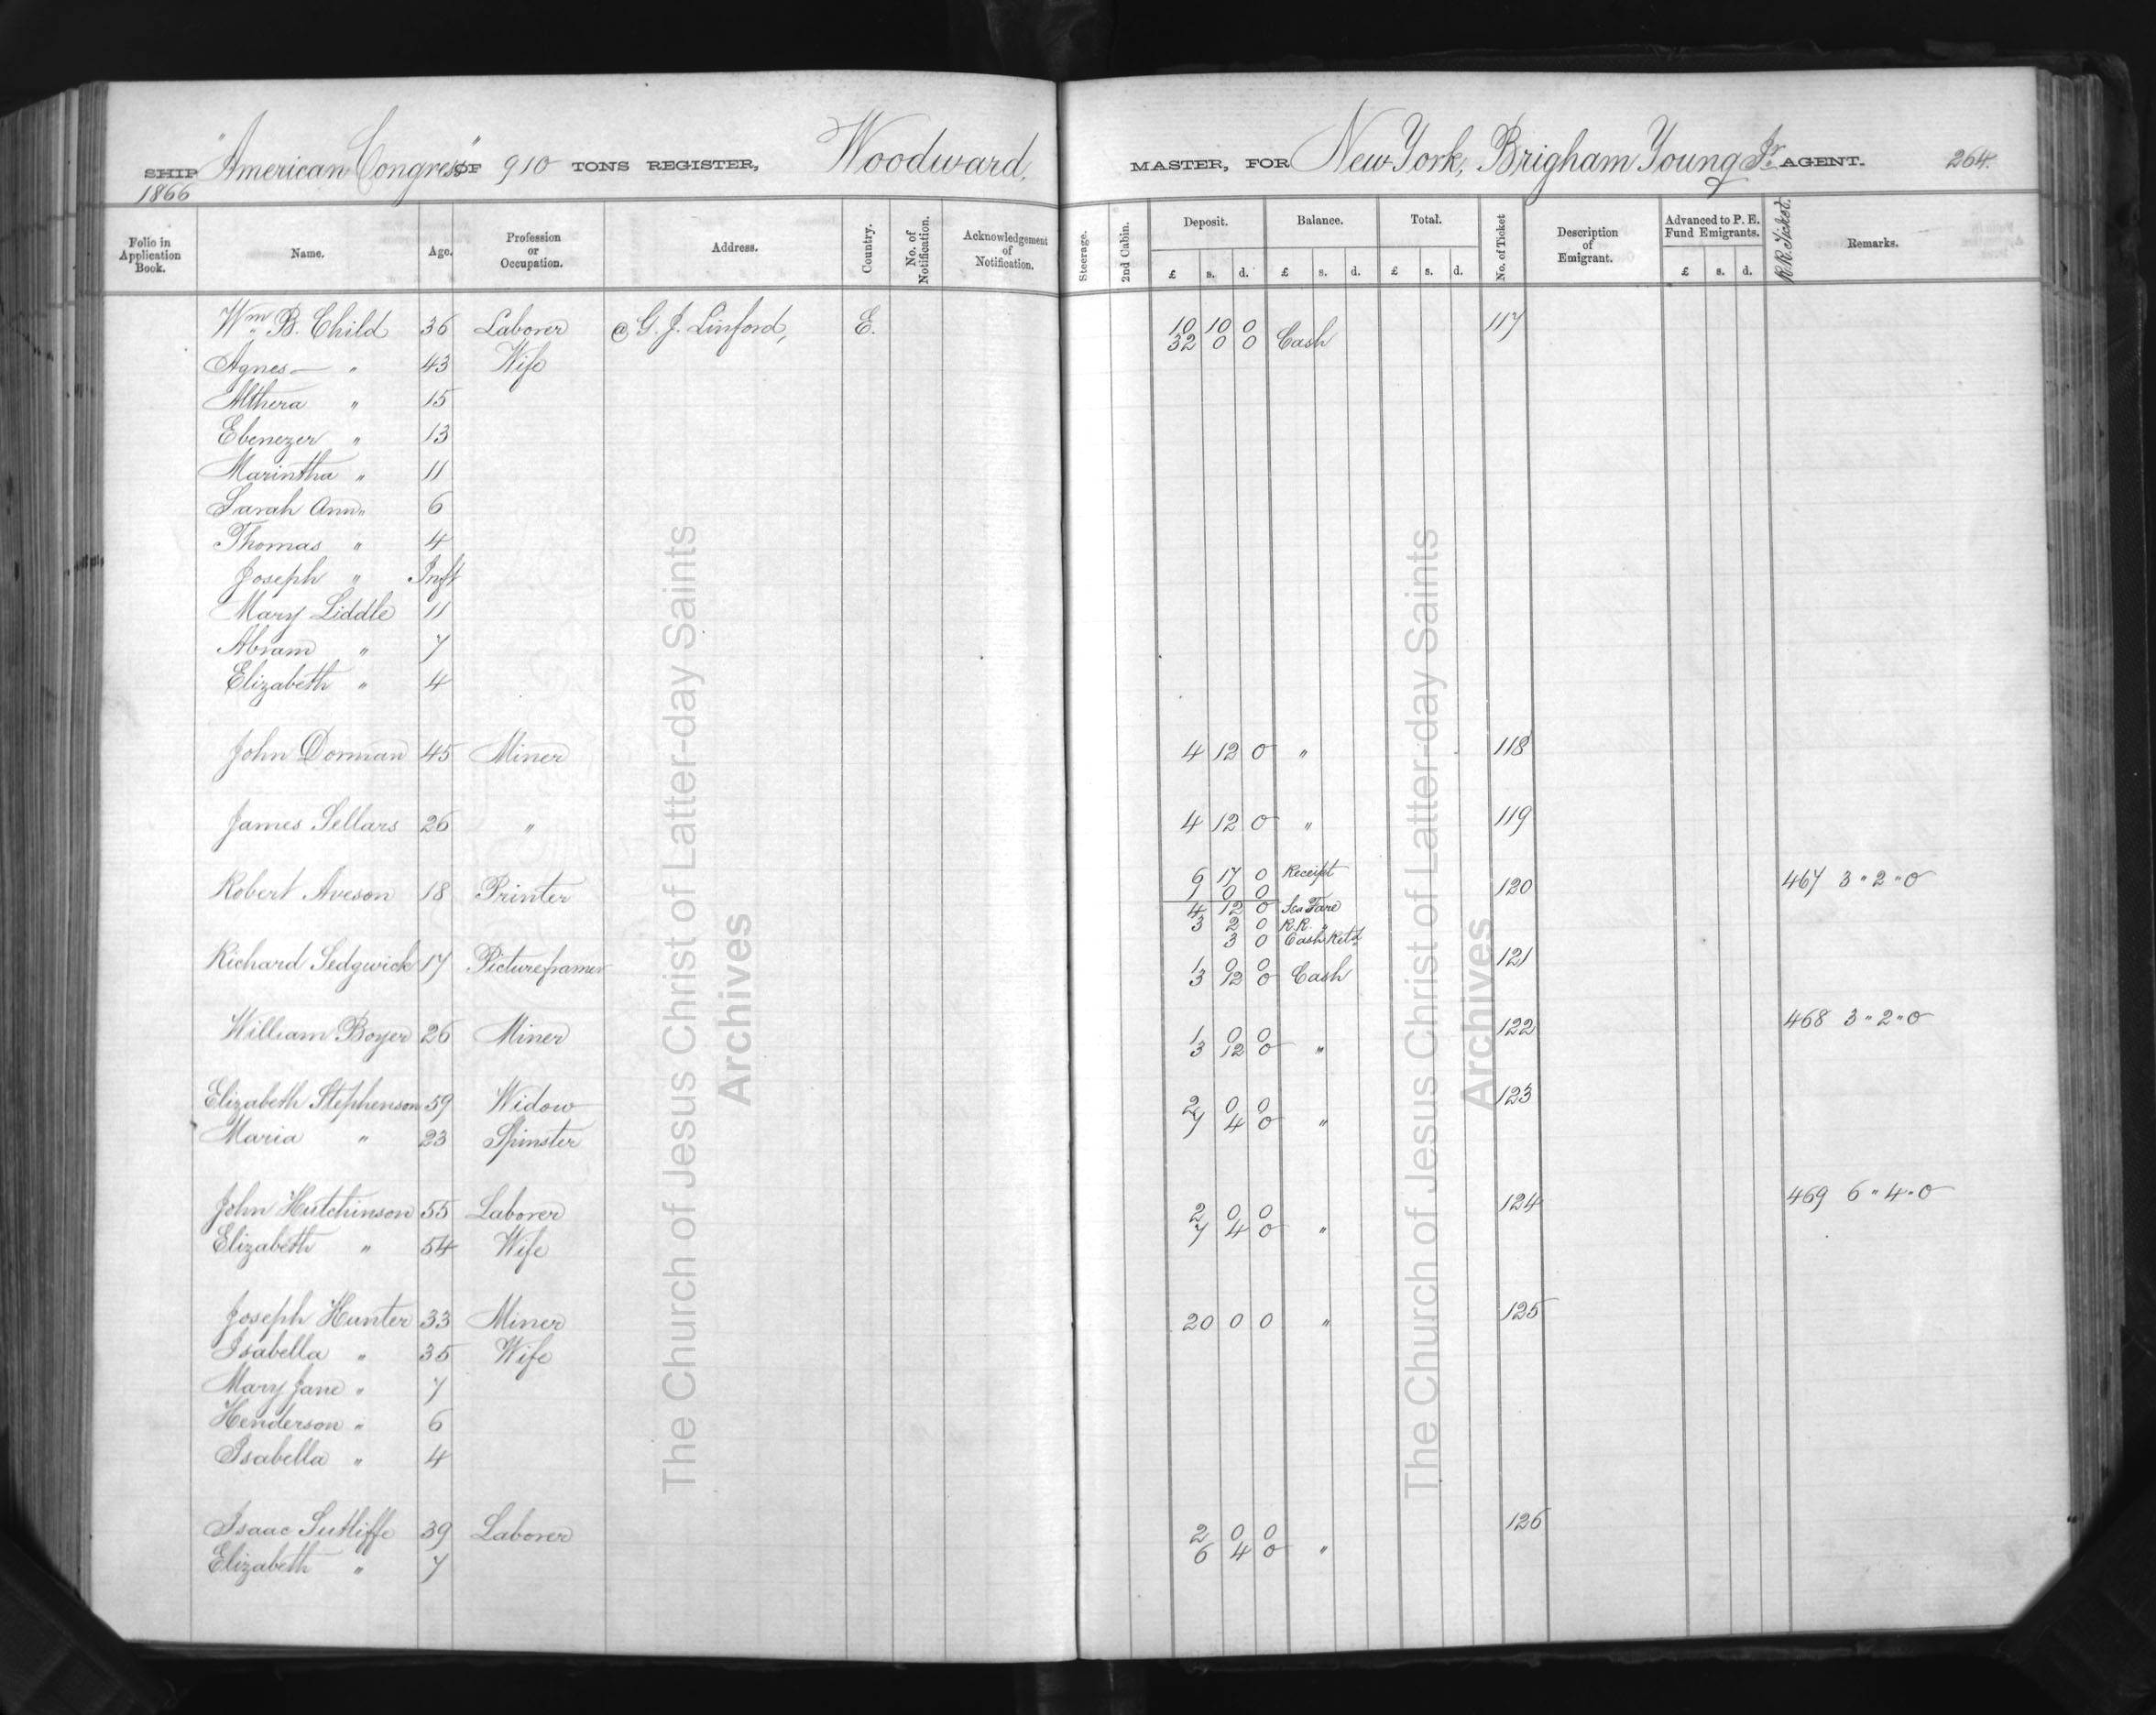 SHIP "American Congress" OF 910 TONS REGISTER, Woodward, MASTER, FOR New York, Brigham Young Jr. AGENT. 264.
1866
Folio in Application Book. Name. Age. Profession or Occupation. Address. Country. No. of Notification. Acknowledgement of Notification. Steerage. 2nd Cabin. Deposit. Balance. Total. No. of Ticket Description of Emigrant. Advanced to P. E. Fund Emigrants. R.R. Ticket. Remarks.
£ s. d. £ s. d. £ s. d. £ s. d.
Wm B. Child 36 Laborer @ G. J. Linford, E. 10 10 0 117
32 0 0 Cash
Agnes — " 43 Wife
Althera " 15
Ebenezer " 13
Marintha " 11
Sarah Ann " 6
Thomas " 4
Joseph " Inft
Mary Liddle 11
Abram " 7
Elizabeth " 4
John Dorman 45 Miner 4 12 0 " 118
James Sellars 26 " 4 12 0 " 119
6 17 0 Receipt
Robert Aveson 18 Printer 1 0 0 120 467 3 " 2 " 0
4 12 0 Sea Fare
3 2 0 R.R. "
3 0 Cash Retd
Richard Sedgwick 17 Pictureframer 1 0 0 121
3 12 0 Cash
William Boyer 26 Miner 1 0 0 122 468 3 " 2 " 0
3 12 0 "
Elizabeth Stephenson 59 Widow 2 0 0 123
7 4 0 "
Maria " 23 Spinster
John Hutchinson 55 Laborer 2 0 0 124 469 6 " 4 " 0
7 4 0 "
Elizabeth " 54 Wife
Joseph Hunter 33 Miner 20 0 0 " 125
Isabella " 35 Wife
Mary Jane " 7
Henderson " 6
Isabella " 4
Isaac Sutliffe 39 Laborer 2 0 0 126
6 4 0 "
Elizabeth " 7
The Church of Jesus Christ of Latter-day Saints
Archives
The Church of Jesus Christ of Latter-day Saints
Archives